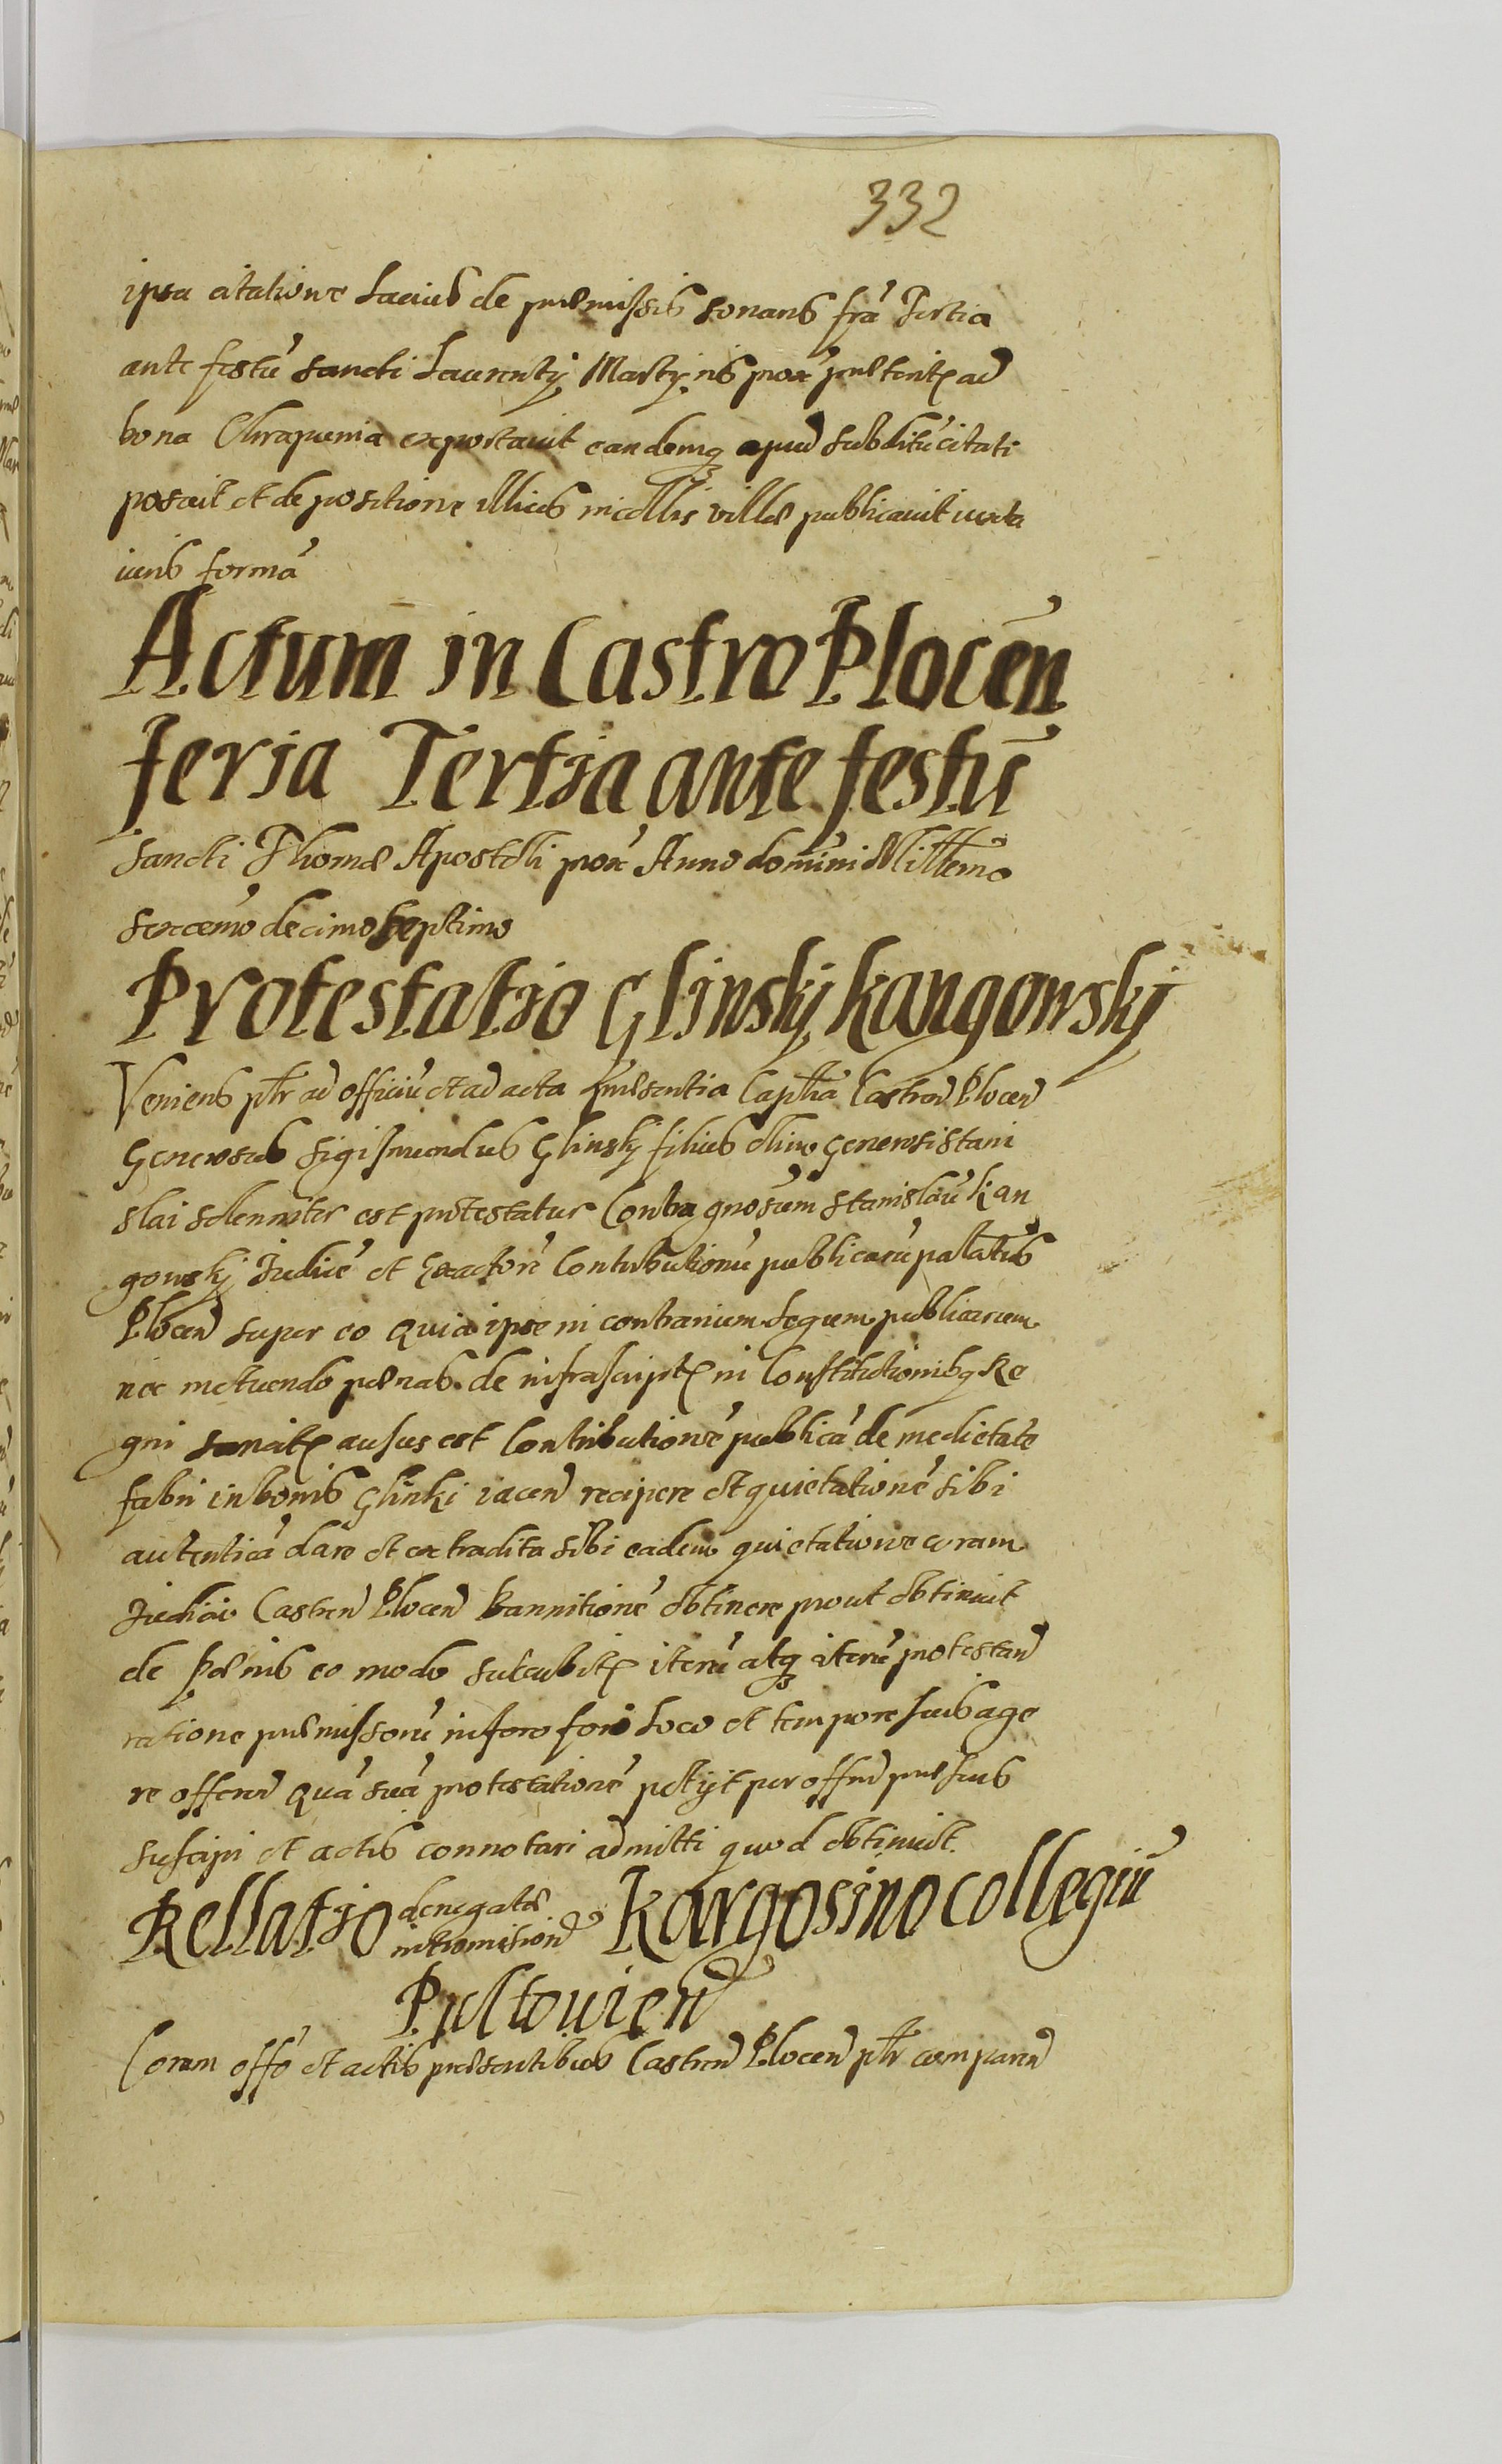 332
ipsa citatione Lacius de præmissis sonans fra Tertia
ante festū sancti Laurentÿ Martyris prox præterit ad
bona Chrapunia exportavit eandemq apud subditū citati
posuit et de positione illius incolis villæ publicavit iuxta
iuris formā
Actum in Castro Plocen
feria Tertia ante festū
Sancti Thomæ Apostoli prox Anno domini Millemo
sexcemo decimo septimo
Protestatio Glinskÿ Kangowskj
Veniens ptr ad officiū et ad acta præsentia Captlia Castren Plocen
Generosus Sigismundus Glinskj filius olim Generosi Stani
slai solenniter est protestatus Contra gnosum Stanislaū Kan
gowskj Iudice et Exactore Contributionū publicarū palatus
Plocen super eo Quia ipse in contrarium Legum publicarum
nec metuendo pænas de infrascript in Constitutionibq Re
gni sancit ausus est Contributionē publicā de medietate
fabri in bonis Glinki iacen recipere et quietationē sibi
autenticā dare et extradita sibi eadem quietatione coram
Iudicio Castren Plocen Bannitionē obtinere prout obtinuit
de Pænis eo modo succubit iterū atq iterū protestan
ratione præmissorū in foro fori Loco et tempore suis age
re offeren Quā suā protestationē petijt per offm præsens
suscipi et actis connotari admitti quod obtinuit.
Rellatio denegatæ
intromision Kargosino collegiū
Pultovien
Coram offo et actis præsentibus Castren Plocen ptr comparen